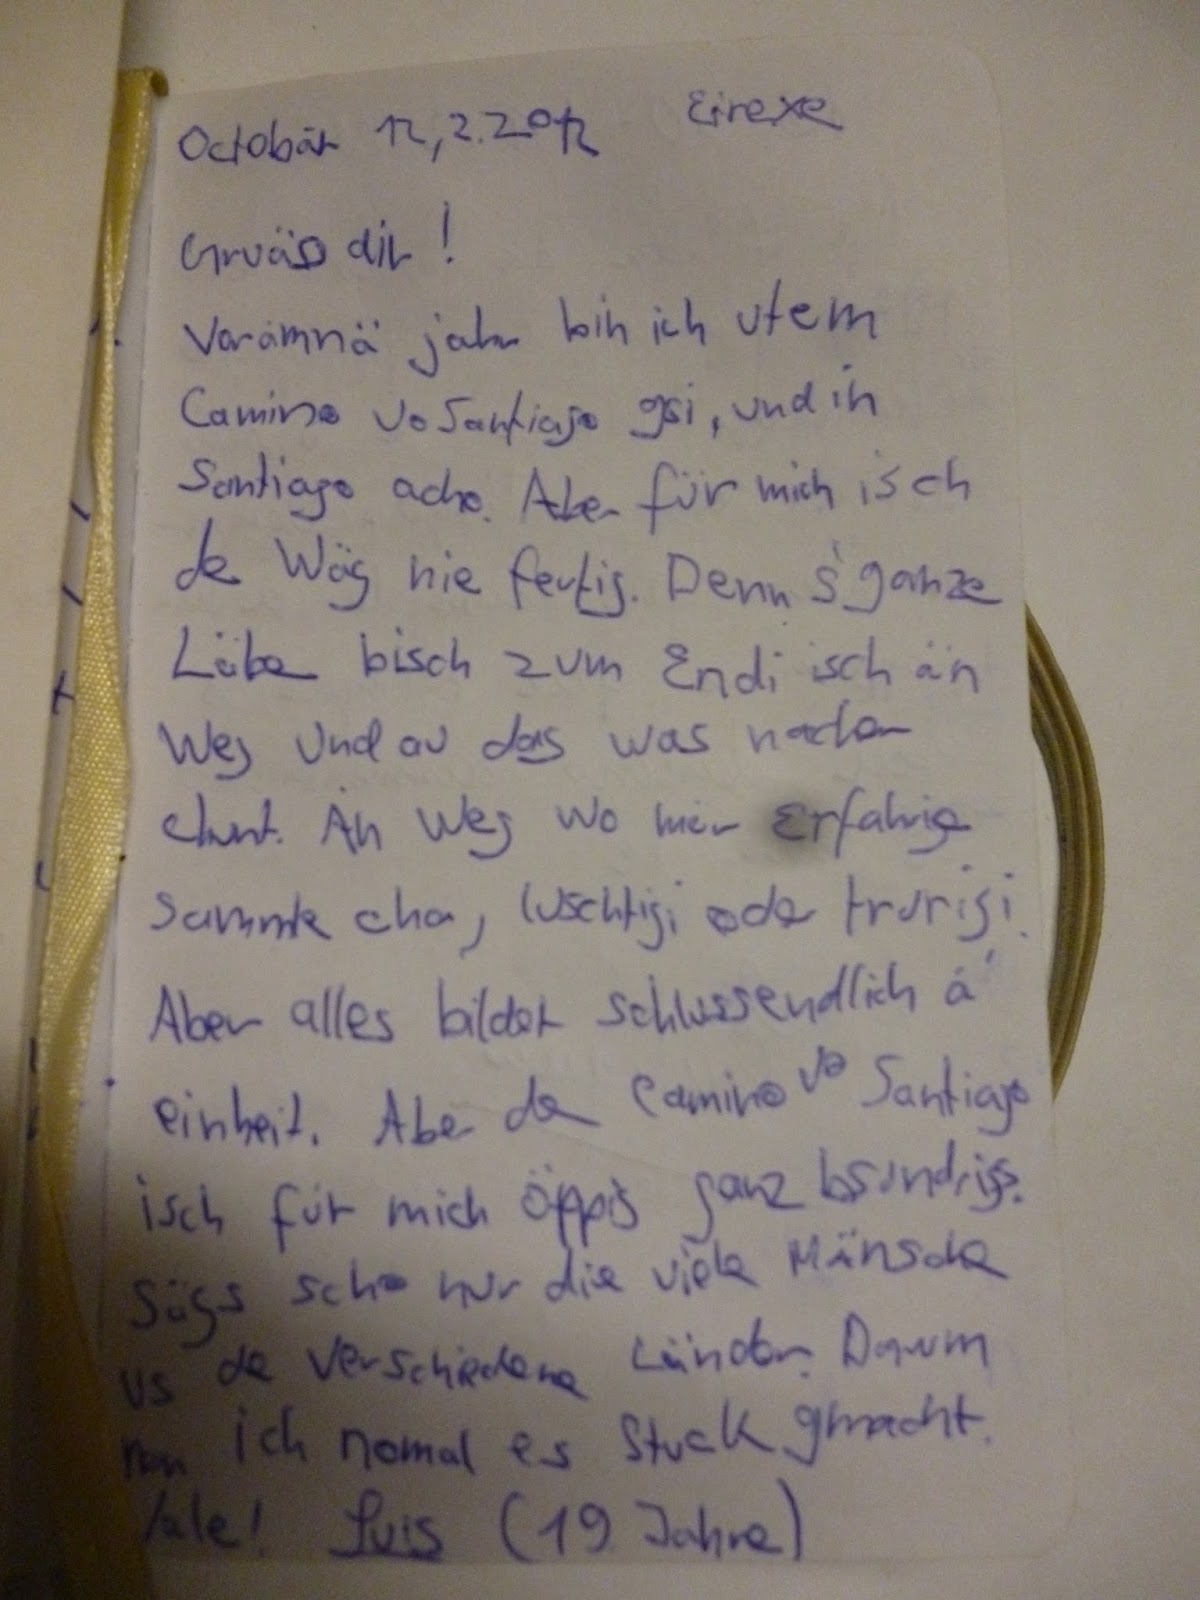 Octobär 12, 2.2012 Eirexe
Gruäss dir!
Vorämnä jahr bin ich utem
Camino vo Santiago gsi, und in
Santiago acho. Aber für mich isch
de Wäg nie fertig. Denn s'ganze
Läbe bisch zum Endi isch än
Weg und au das was nacher
chunt. Än Weg wo mier Erfahrige
sammle cha, luschtigi oder trurigi.
Aber alles bildet schlussendlich ä
einheit. Aber de Camino vo Santiago
isch für mich öppis ganz bsundrigs.
Sägs scho nur die viele Mänsche
us de verschiedene Länder. Darum
han ich nomal es Stuck gmacht.
Vale! Luis (19 Jahre)